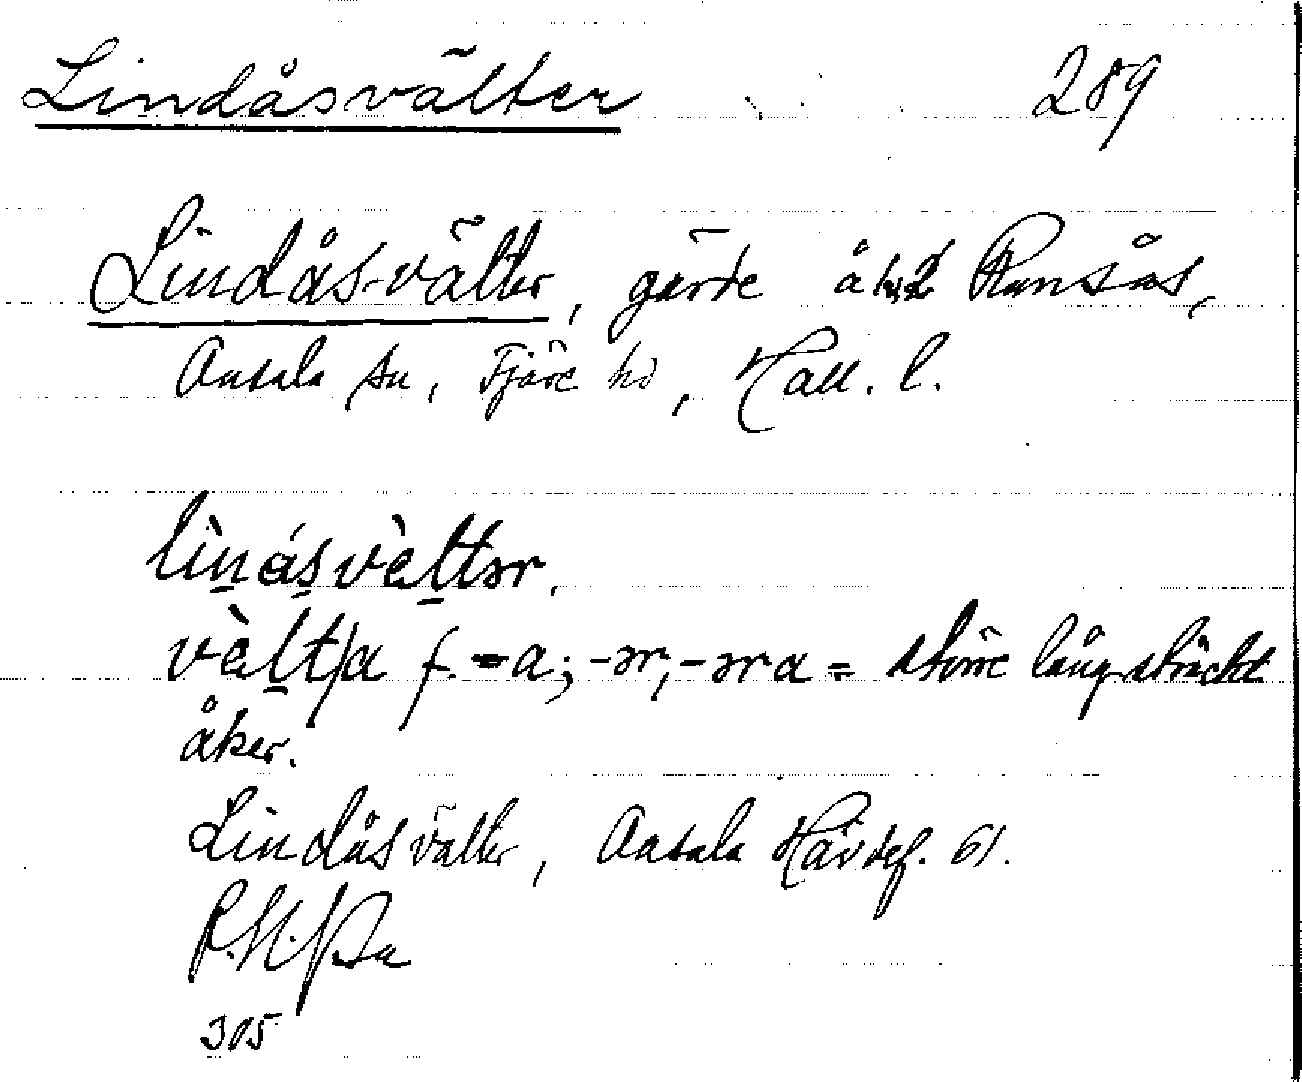 Lindåsvälter 289
Lindås-välter, gärde å Ransås,
Onsala sn, Fjäre hd, Hall. l.
lìnásvèltər.
vèlt/a f. -a; -ər, -əra = större långsträckt
åker.
Lindåsvälter, Onsala Hävdef. 61.
305